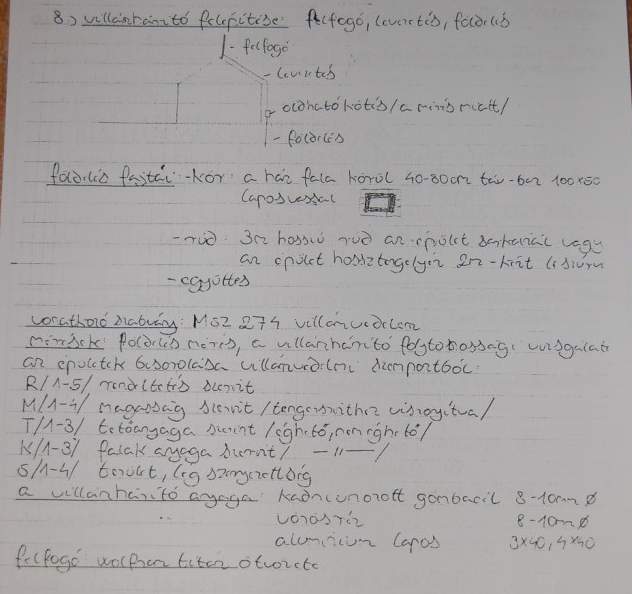 8.) villámhárító felépítése: felfogó, levezetés, földelés
- felfogó
- levezetés
oldható kötés /a mérés miatt/
- földelés
földelés fajtái: -kör: a ház fala körül 40-80cm táv-ban 100x50
laposvassal
-rúd: 3m hosszú rúd az épület sarkainál vagy
az épület hossztengelyén 2m-ként leszúrva
-együttes
vonatkozó szabvány: MSZ 274 villámvédelem
mérések: földelés mérés, a villámhárító folytonossági vizsgálata
az épületek besorolása villámvédelmi szempontból:
R/1-5/ rendeltetés szerint
M/1-4/ magasság szerint /tengerszinthez viszonyítva/
T/1-3/ tetőanyaga szerint /éghető, nem éghető/
K/1-3/ falak anyaga szerint / -"- /
S/1-4/ terület, lég szennyezettség
a villámhárító anyaga: kadmiumozott gömbacél 8-10mm ø
" vörösréz 8-10mm ø
alumínium lapos 3x40, 4x40
felfogó wolfram titán ötvözete